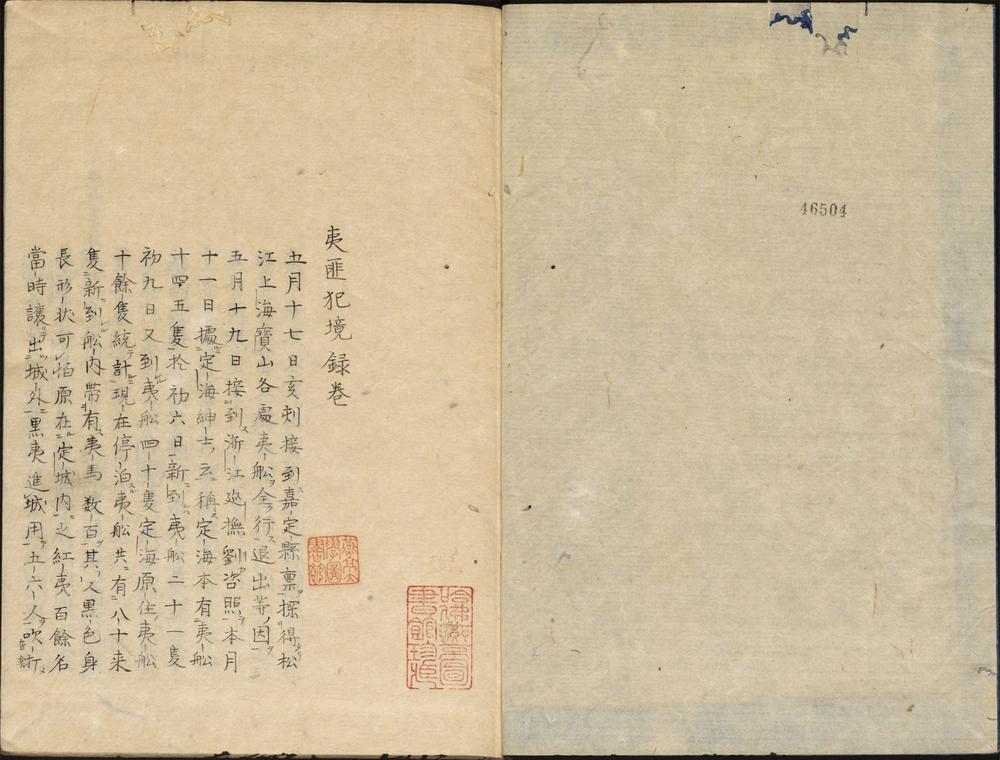 46504
夷匪犯境録卷
五月十七日亥刻接到嘉定縣稟探得松
江上海寶山各處夷船全行退出等因
五月十九日接到浙江巡撫劉咨照本月
十一日據定海紳士云稱定海本有夷船
十四五隻於初六日新到夷船二十一隻
初九日又到夷船四十隻定海原住夷船
十餘隻統計現在停泊夷船共有八十来
隻新到船内帶有夷馬数百其人黒色身
長形状可怕原在定城内之紅夷百餘名
當時讓出城外黒夷進城用五六人吹打
音樂
哈佛燕京圖書館珍藏